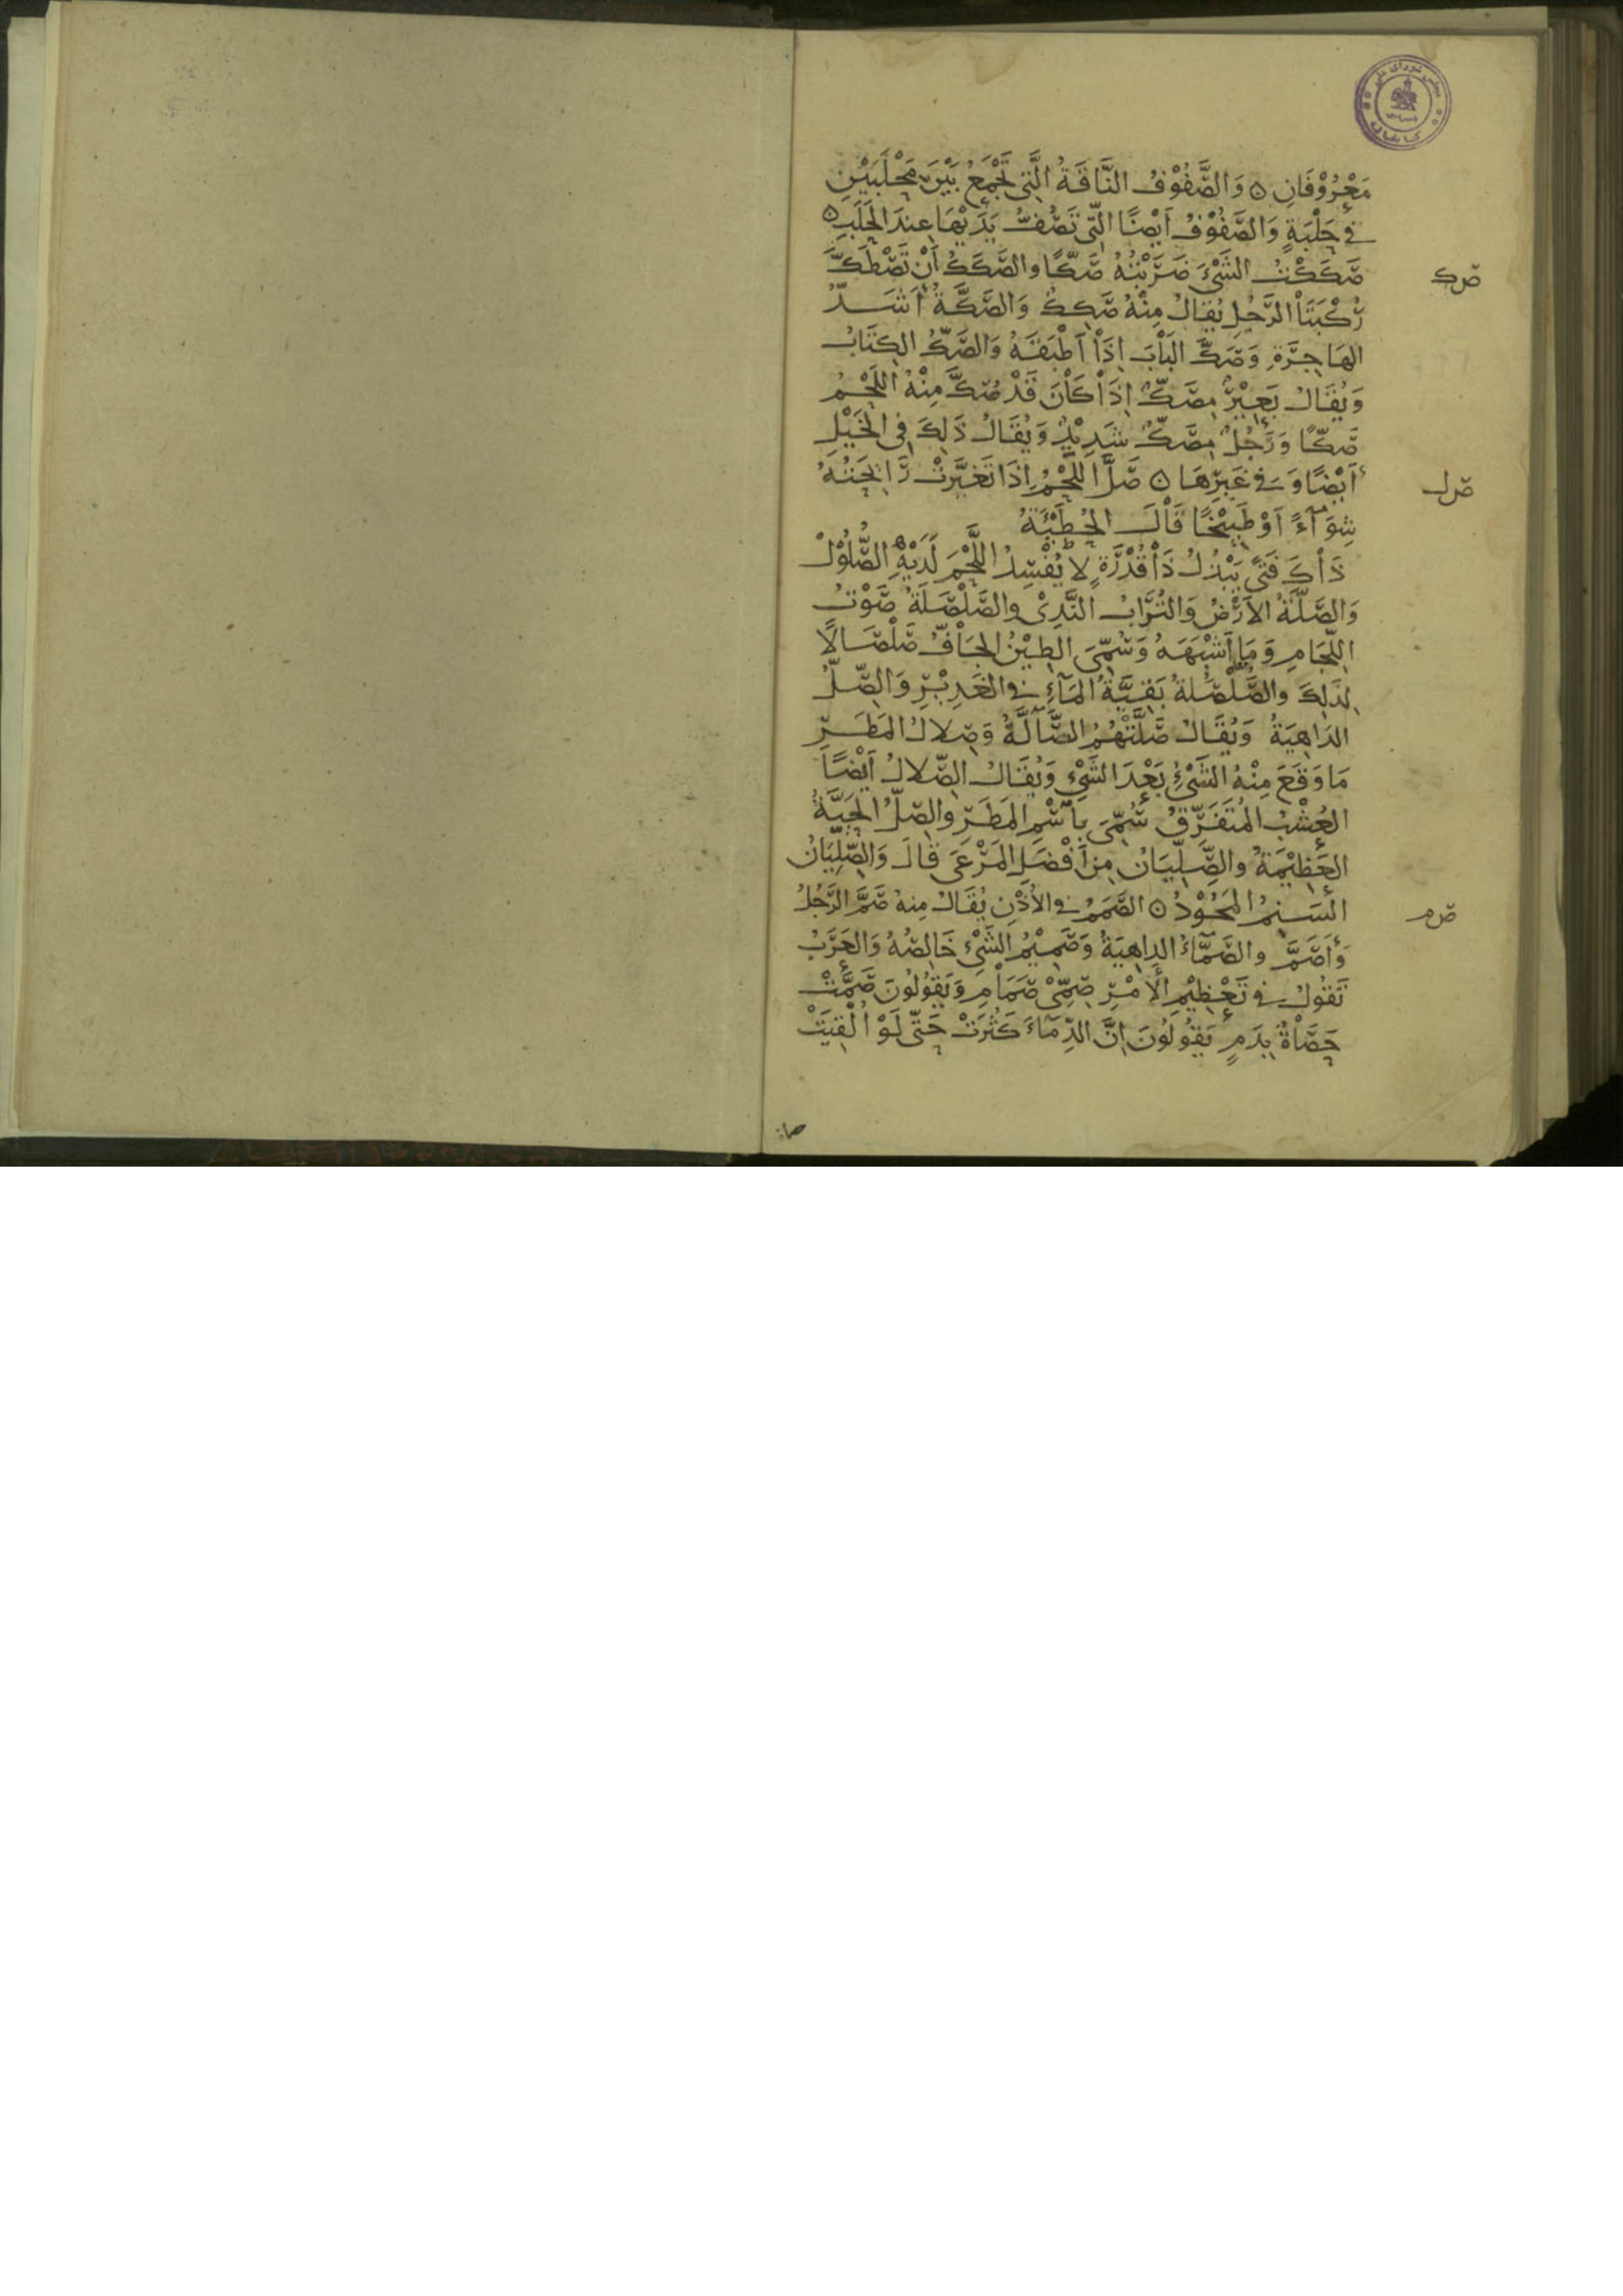 مَعْرُوْفَانِ ۝ وَالصَّفُوْفُ النَّاقَةُ الَّتِي تَجْمَعُ بَيْنَ مَحْلَبَيْنِ
في حَلْبَةٍ وَالصَّفُوْفُ أَيْضًا الَّتِي تَصُفُّ يَدَيْهَا عِندَ الحَلَبِ ۝
صَكَكْتُ الشَّيْءَ ضَرَبْتُهُ صَكًّا والصَّكَكُ أَنْ تَصْطَكَّ
صك
رُكْبَتَا الرَّجُلِ يُقالُ مِنْهُ صَكِكَ وَالصَّكَّةُ أَشَدُّ
الهَاجِرَةِ وَصَكَّ البَابَ إِذَا أَطْبَقَهُ وَالصَّكُّ الكِتَابُ
وَيُقَالُ بَعِيْرٌ مِصَكٌّ إِذَا كَانَ قَدْ صُكَّ مِنْهُ اللَّحْمُ
صَكًّا وَرَجُلٌ مِصَكٌّ شَدِيْدٌ وَيُقَالُ ذَلِكَ فِي الخَيْلِ
أَيْضًا وَفي غَيْرِهَا ۝ صَلَّ اللَّحْمُ إِذَا تَغَيَّرَتْ رَائِحَتُهُ
صل
شِوَآءً أَوْ طَبِيْخًا قَالَ الحُطَيْئَةُ
ذَاكَ فَتًى يَبْذُلُ ذَا قُدْرَةٍ لا يُفْسِدُ اللَّحْمَ لَدَيْهِ الصُّلُوْلْ
وَالصَّلَّةُ الأَرْضُ وَالتُّرَابُ النَّدِيُ والصَّلْصَلَةُ صَوْتُ
اللِّجَامِ وَمَا أَشْبَهَهُ وَسُمِّيَ الطِيْنُ الجَافُّ صَلْصَالًا
لِذَلِكَ والصُّلْصُلَةُ بَقِيَّةُ المَآءِ في الغَدِيْرِ وَالصِّلُّ
الدَاهِيَةُ وَيُقَالُ صَلَّتْهُمُ الصَّآلَّةُ وَصِلالُ المَطَرِ
مَا وَقَعَ مِنْهُ الشَّيْءُ بَعْدَ الشَّيْءِ وَيُقَالُ الصِّلالُ أَيْضًا
العُشْبُ المُتَفَرِّقُ سُمِّيَ بِاسْمِ المَطَرِ والصِلُّ الحَيَّةُ
العَظِيْمَةُ والصِّلِّيَانُ مِن أَفْضَلِ المَرْعَى قَالَ وَالصِّلِّيَانُ
السَنِمُ المَجُوْدُ ۝ الصَّمَمُ في الأُذُنِ يُقَالُ مِنهُ صَمَّ الرَّجُلُ
صم
وَأَصَمَّ والصَّمَّاءُ الدِاهِيَةُ وَصَمِيْمُ الشَيْءِ خَالِصُهُ وَالعَرَبُ
تَقُولُ في تَعْظِيْمِ الأَمْرِ صَمِّيْ صَمَامِ وَيَقُولُونَ صَمَّتْ
حَصَاةٌ بِدَمٍ يَقُولُونَ إِنَّ الدِّمَاءَ كَثُرَتْ حَتَّى لَوْ أُلْقِيَتْ